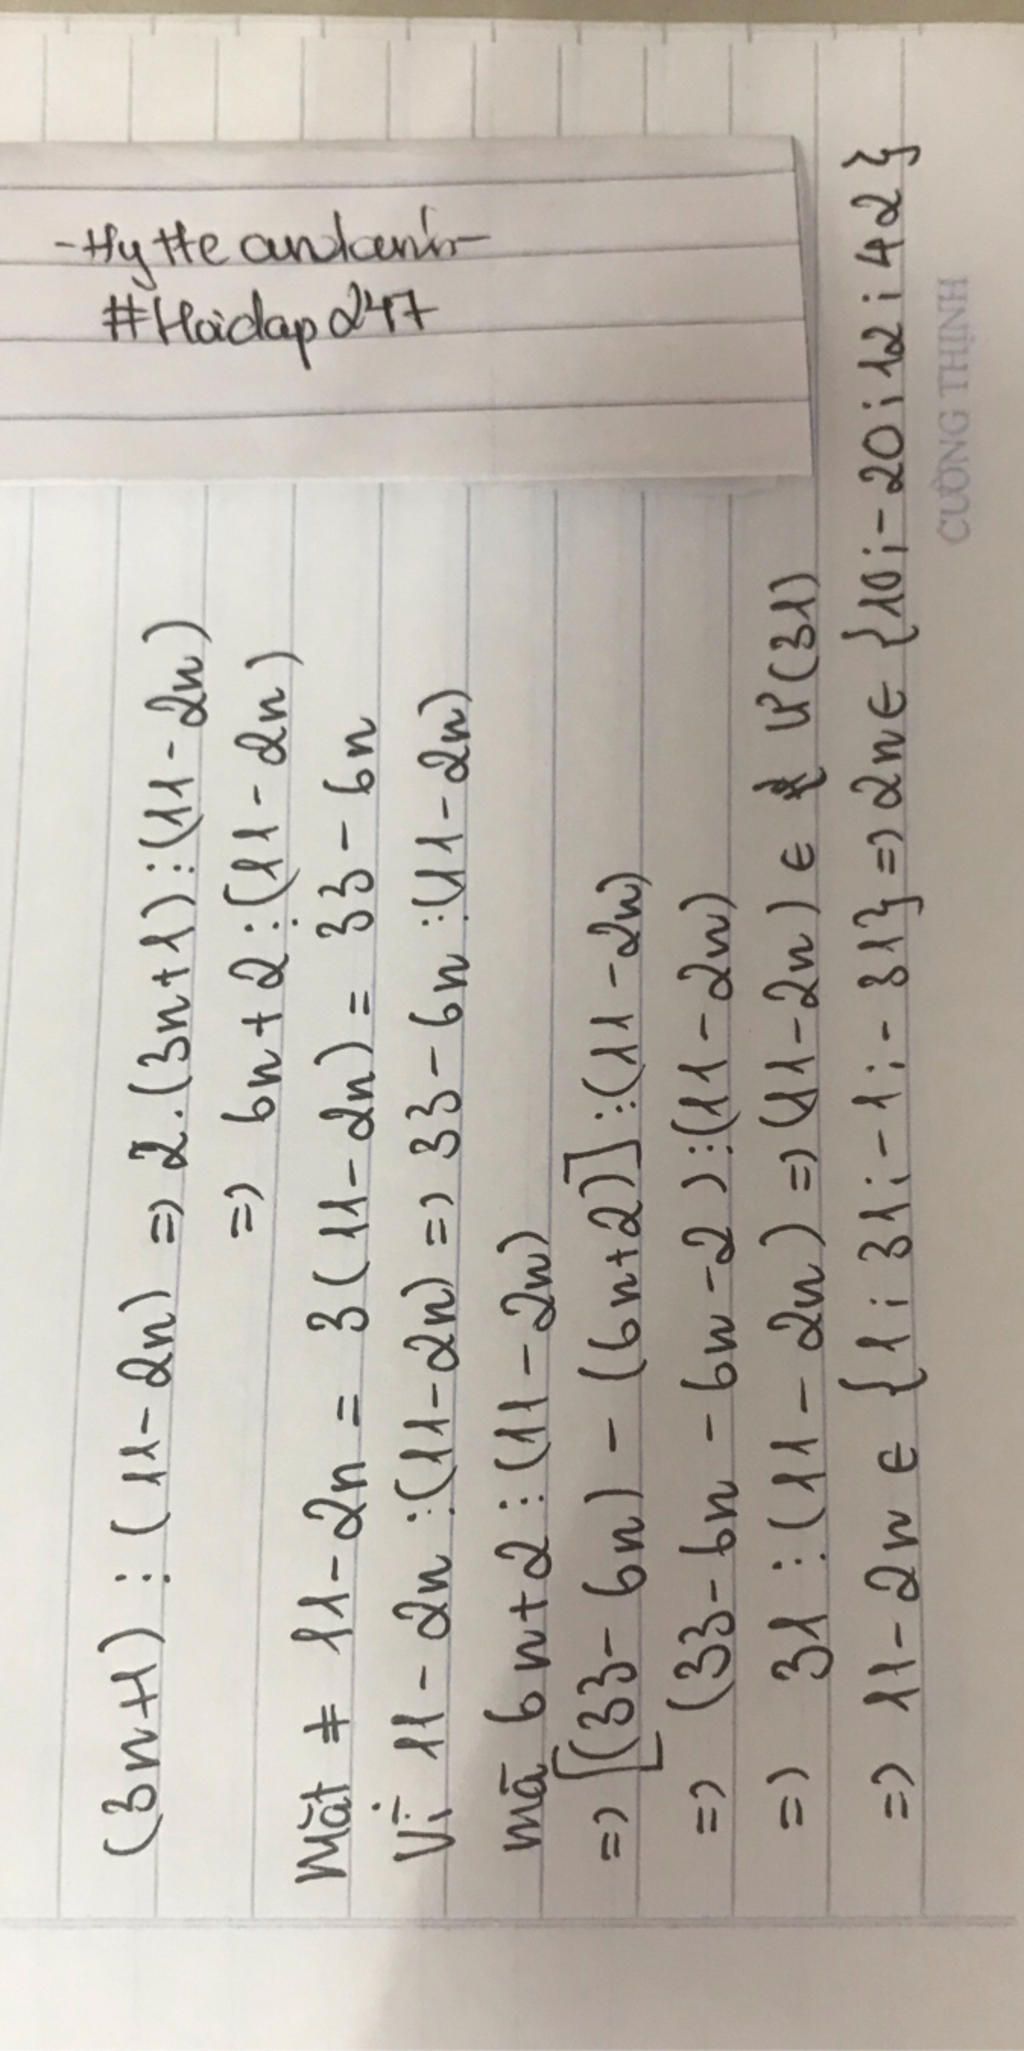 -Hy tte andcanh-
#Hoidap247
(3n+1) ⋮ (11-2n) => 2.(3n+1)⋮(11-2n)
=> 6n+2⋮(11-2n)
Mặt ≠ 11-2n = 3(11-2n) = 33-6n
Vì 11-2n⋮(11-2n) => 33-6n⋮(11-2n)
mà 6n+2⋮(11-2n)
=> [(33-6n)-(6n+2)]⋮(11-2n)
=> (33-6n-6n-2)⋮(11-2n)
=> 31⋮(11-2n) => (11-2n) ∈ Ư(31)
=> 11-2n ∈ {1; 31; -1; -31} => 2n ∈ {10; -20; 12; 42}
CƯỜNG THỊNH